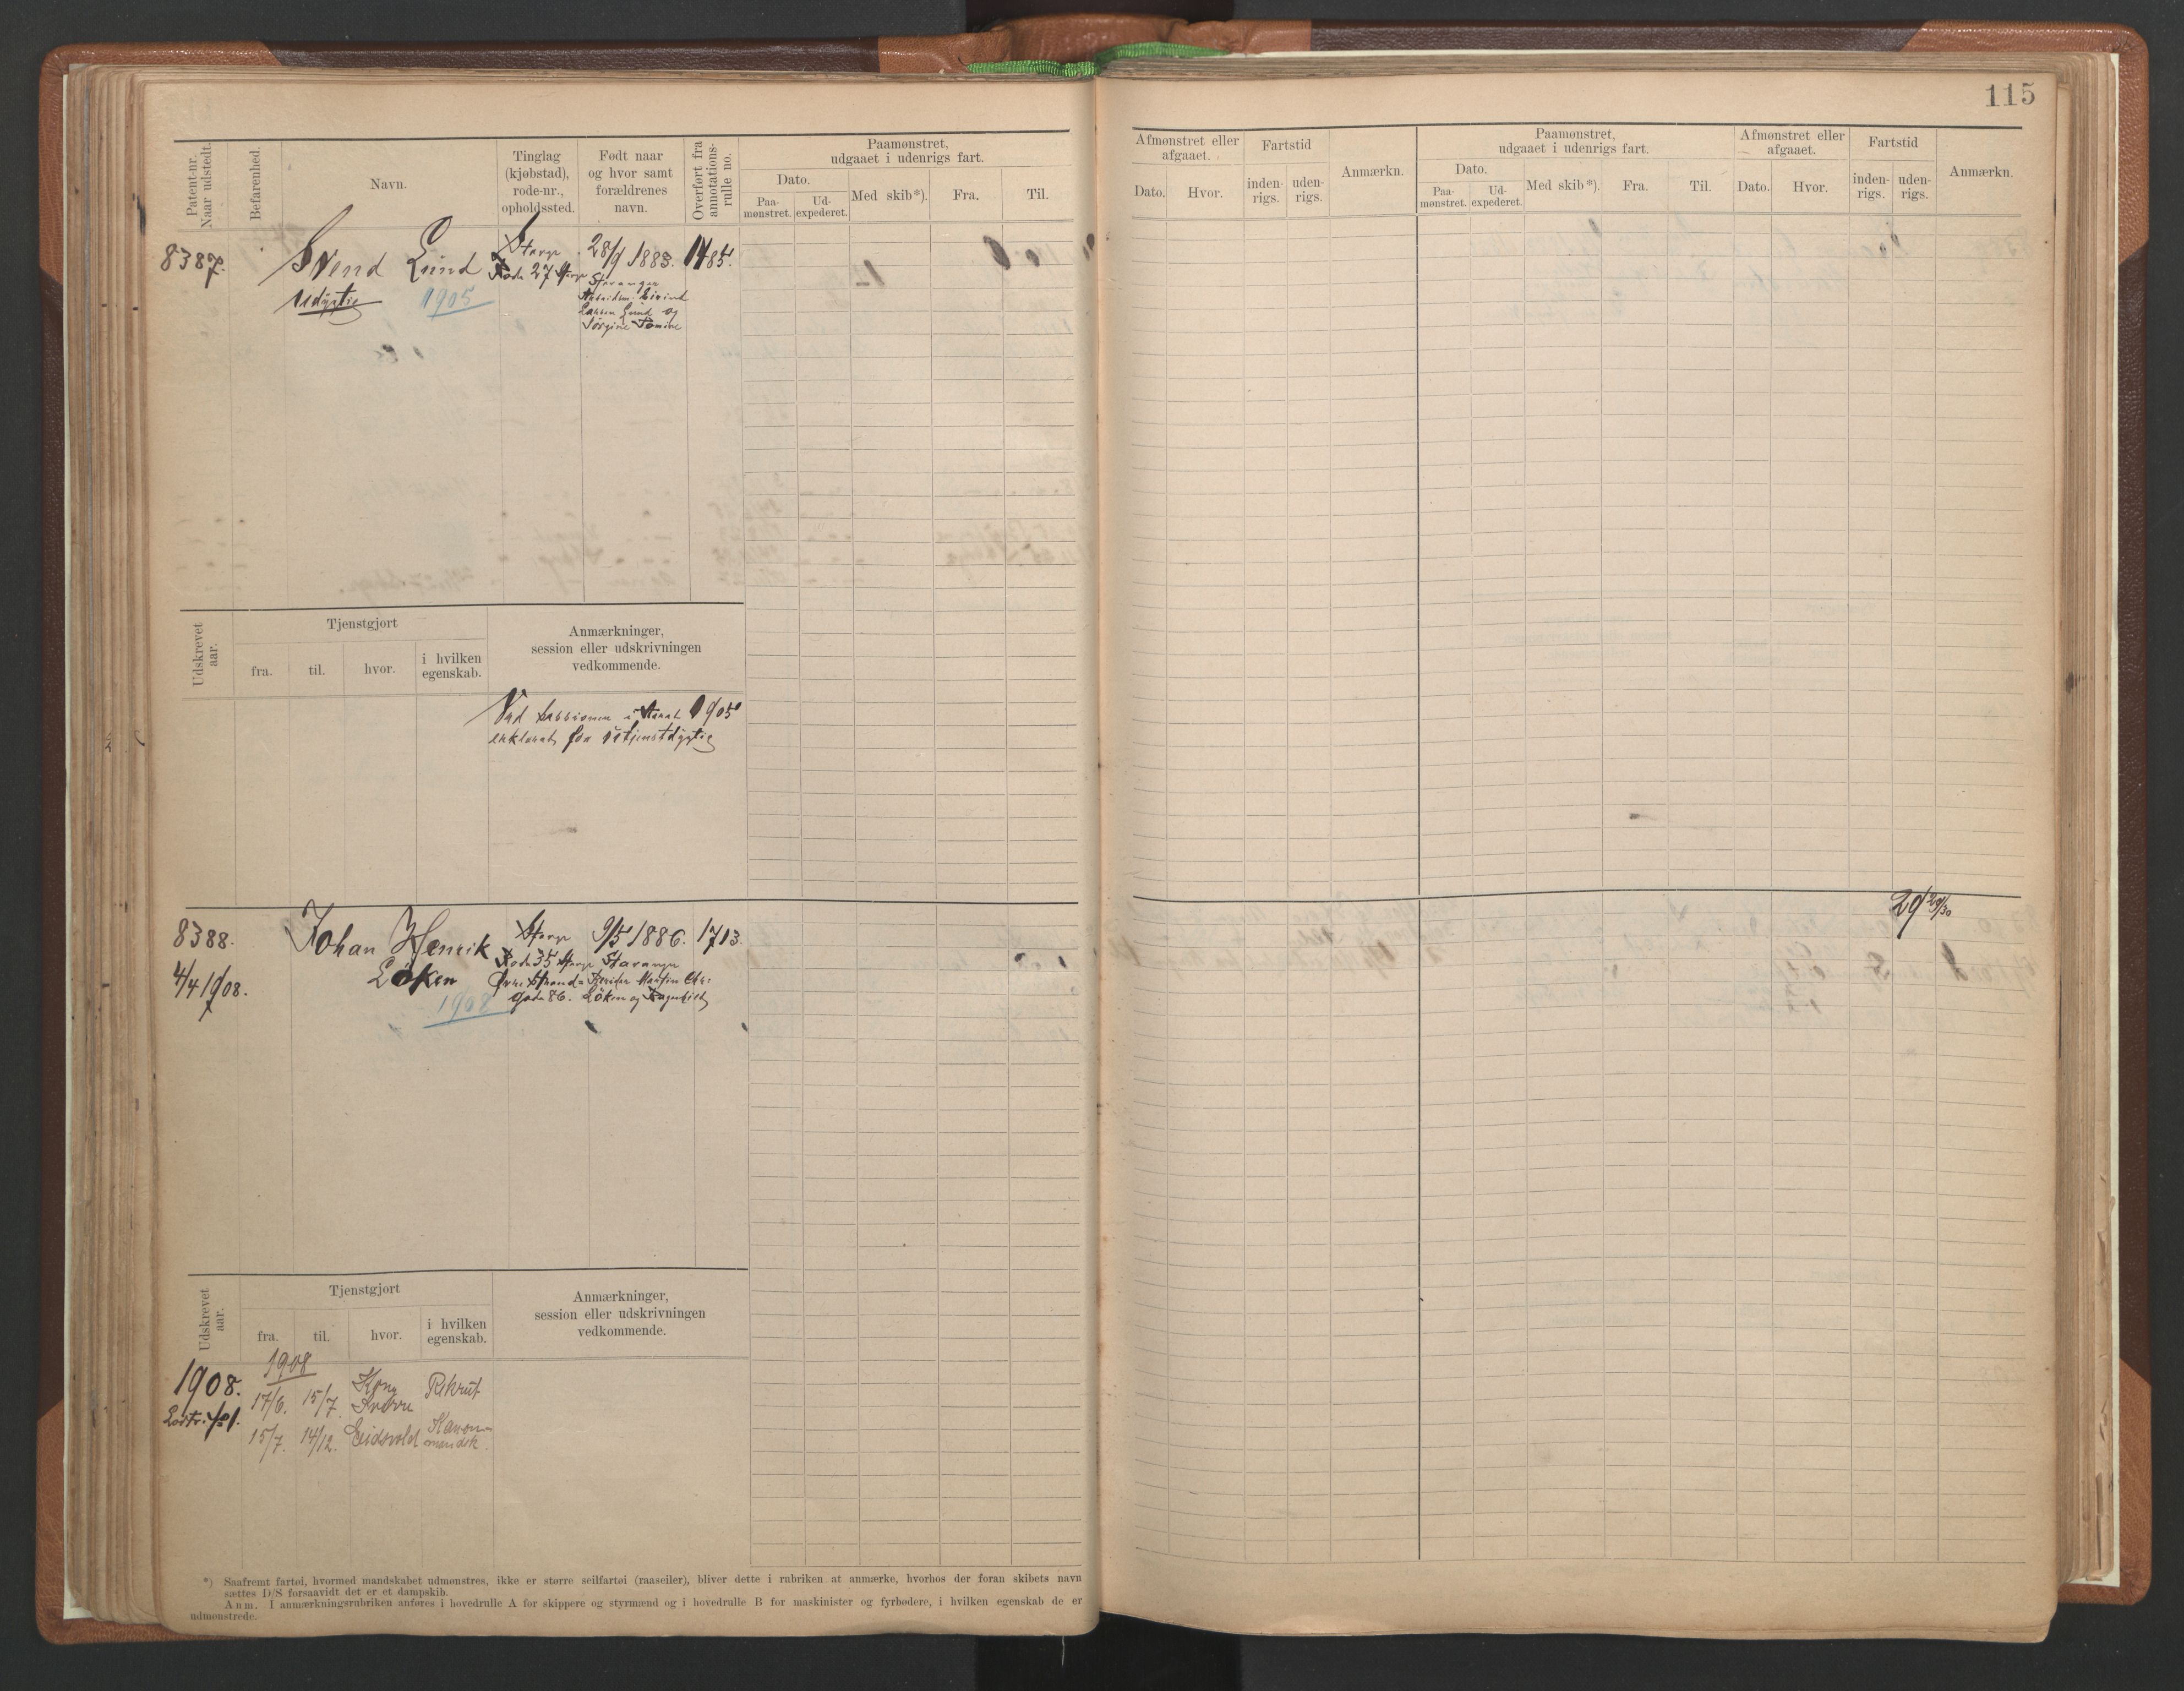 115
Patent-nr. Naar udstedt.
Befarenhed.
Navn.
Tinglag (kjøbstad), rode-nr., opholdssted.
Født naar og hvor samt forældrenes navn.
Overført fra annotations-rulle no.
Paamønstret, udgaaet i udenrigs fart.
Dato.
Paa-mønstret.
Ud-expederet.
Med skib*).
Fra.
Til.
Afmønstret eller afgaaet.
Dato.
Hvor.
Fartstid
inden-rigs.
uden-rigs.
Anmærkn.
Paamønstret, udgaaet i udenrigs fart.
Dato.
Paa-mønstret.
Ud-expederet.
Med skib*).
Fra.
Til.
Afmønstret eller afgaaet.
Dato.
Hvor.
Fartstid
inden-rigs.
uden-rigs.
Anmærkn.
8387.
Svend Lund
Udygtig 1905
Stavgr
Rode 27
28/9 1883.
Stavanger
Arbeidsm. Eivind
Larsen Lund og
1485.
Udskrevet aar.
Tjenstgjort
fra.
til.
hvor.
i hvilken egenskab.
Anmærkninger,
session eller udskrivningen
vedkommende.
Ved sessionen i 1905
erklæret for utjenstdygtig
8388.
4/4 1908.
Johan Henrik
Löken
1908
Stavgr
Rode 35
Øvre Strand-
gade 86.
9/5 1886.
Stavanger
Arbeider Martin Chr.
Löken og
1713.
29 20/30
Udskrevet aar.
Tjenstgjort
fra.
til.
hvor.
i hvilken egenskab.
Anmærkninger,
session eller udskrivningen
vedkommende.
1908.
1908
17/6. 15/7. Kong Sverre Rekrut
15/7. 14/12. Eidsvold Kanon-mandsk.
*) Saafremt fartøi, hvormed mandskabet udmønstres, ikke er større seilfartøi (raaseiler), bliver dette i rubriken at anmærke, hvorhos der foran skibets navn
sættes D/S forsaavidt det er et dampskib.
Anm. I anmærkningsrubriken anføres i hovedrulle A for skippere og styrmænd og i hovedrulle B for maskinister og fyrbødere, i hvilken egenskab de er
udmønstrede.